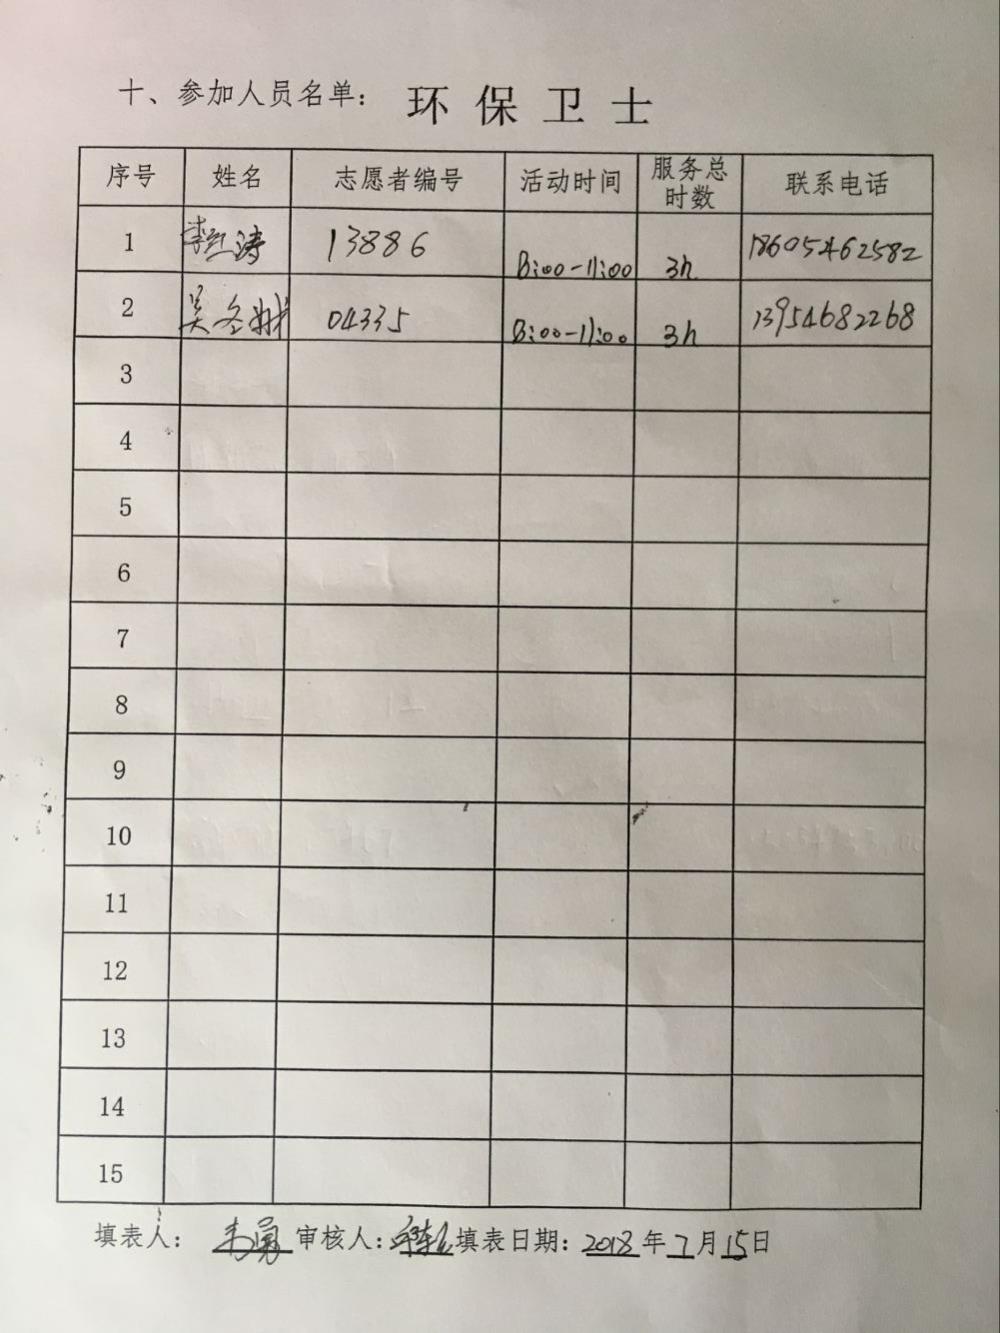 十、参加人员名单： 环保卫士
序号 姓名 志愿者编号 活动时间 服务总时数 联系电话
1 李红涛 13886 8:00-11:00 3h 18605462582
2 吴冬 04335 8:00-11:00 3h 13954682268
3
4
5
6
7
8
9
10
11
12
13
14
15
填表人： 审核人： 填表日期：2018年7月15日